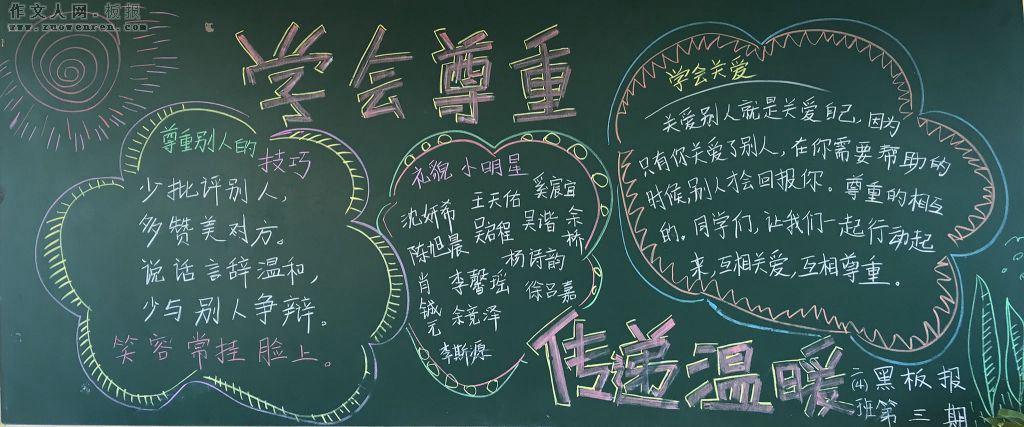 作文人网·板报
www.zuowenren.com
学会尊重
尊重别人的
技巧
少批评别人，
多赞美对方。
说话言辞温和，
少与别人争辩。
笑容常挂脸上。
礼貌小明星
沈妍希 王天佑 奚宸宜
陈旭晨 吴谐 余桥
杨诗韵
肖钺元 李馨瑶 徐吕嘉
余竞泽
李斯源
学会关爱
关爱别人就是关爱自己，因为
只有你关爱了别人，在你需要帮助的
时候，别人才会回报你。尊重的相互
的。同学们，让我们一起行动起
来，互相关爱，互相尊重。
传递温暖
二(4)班
黑板报
第三期